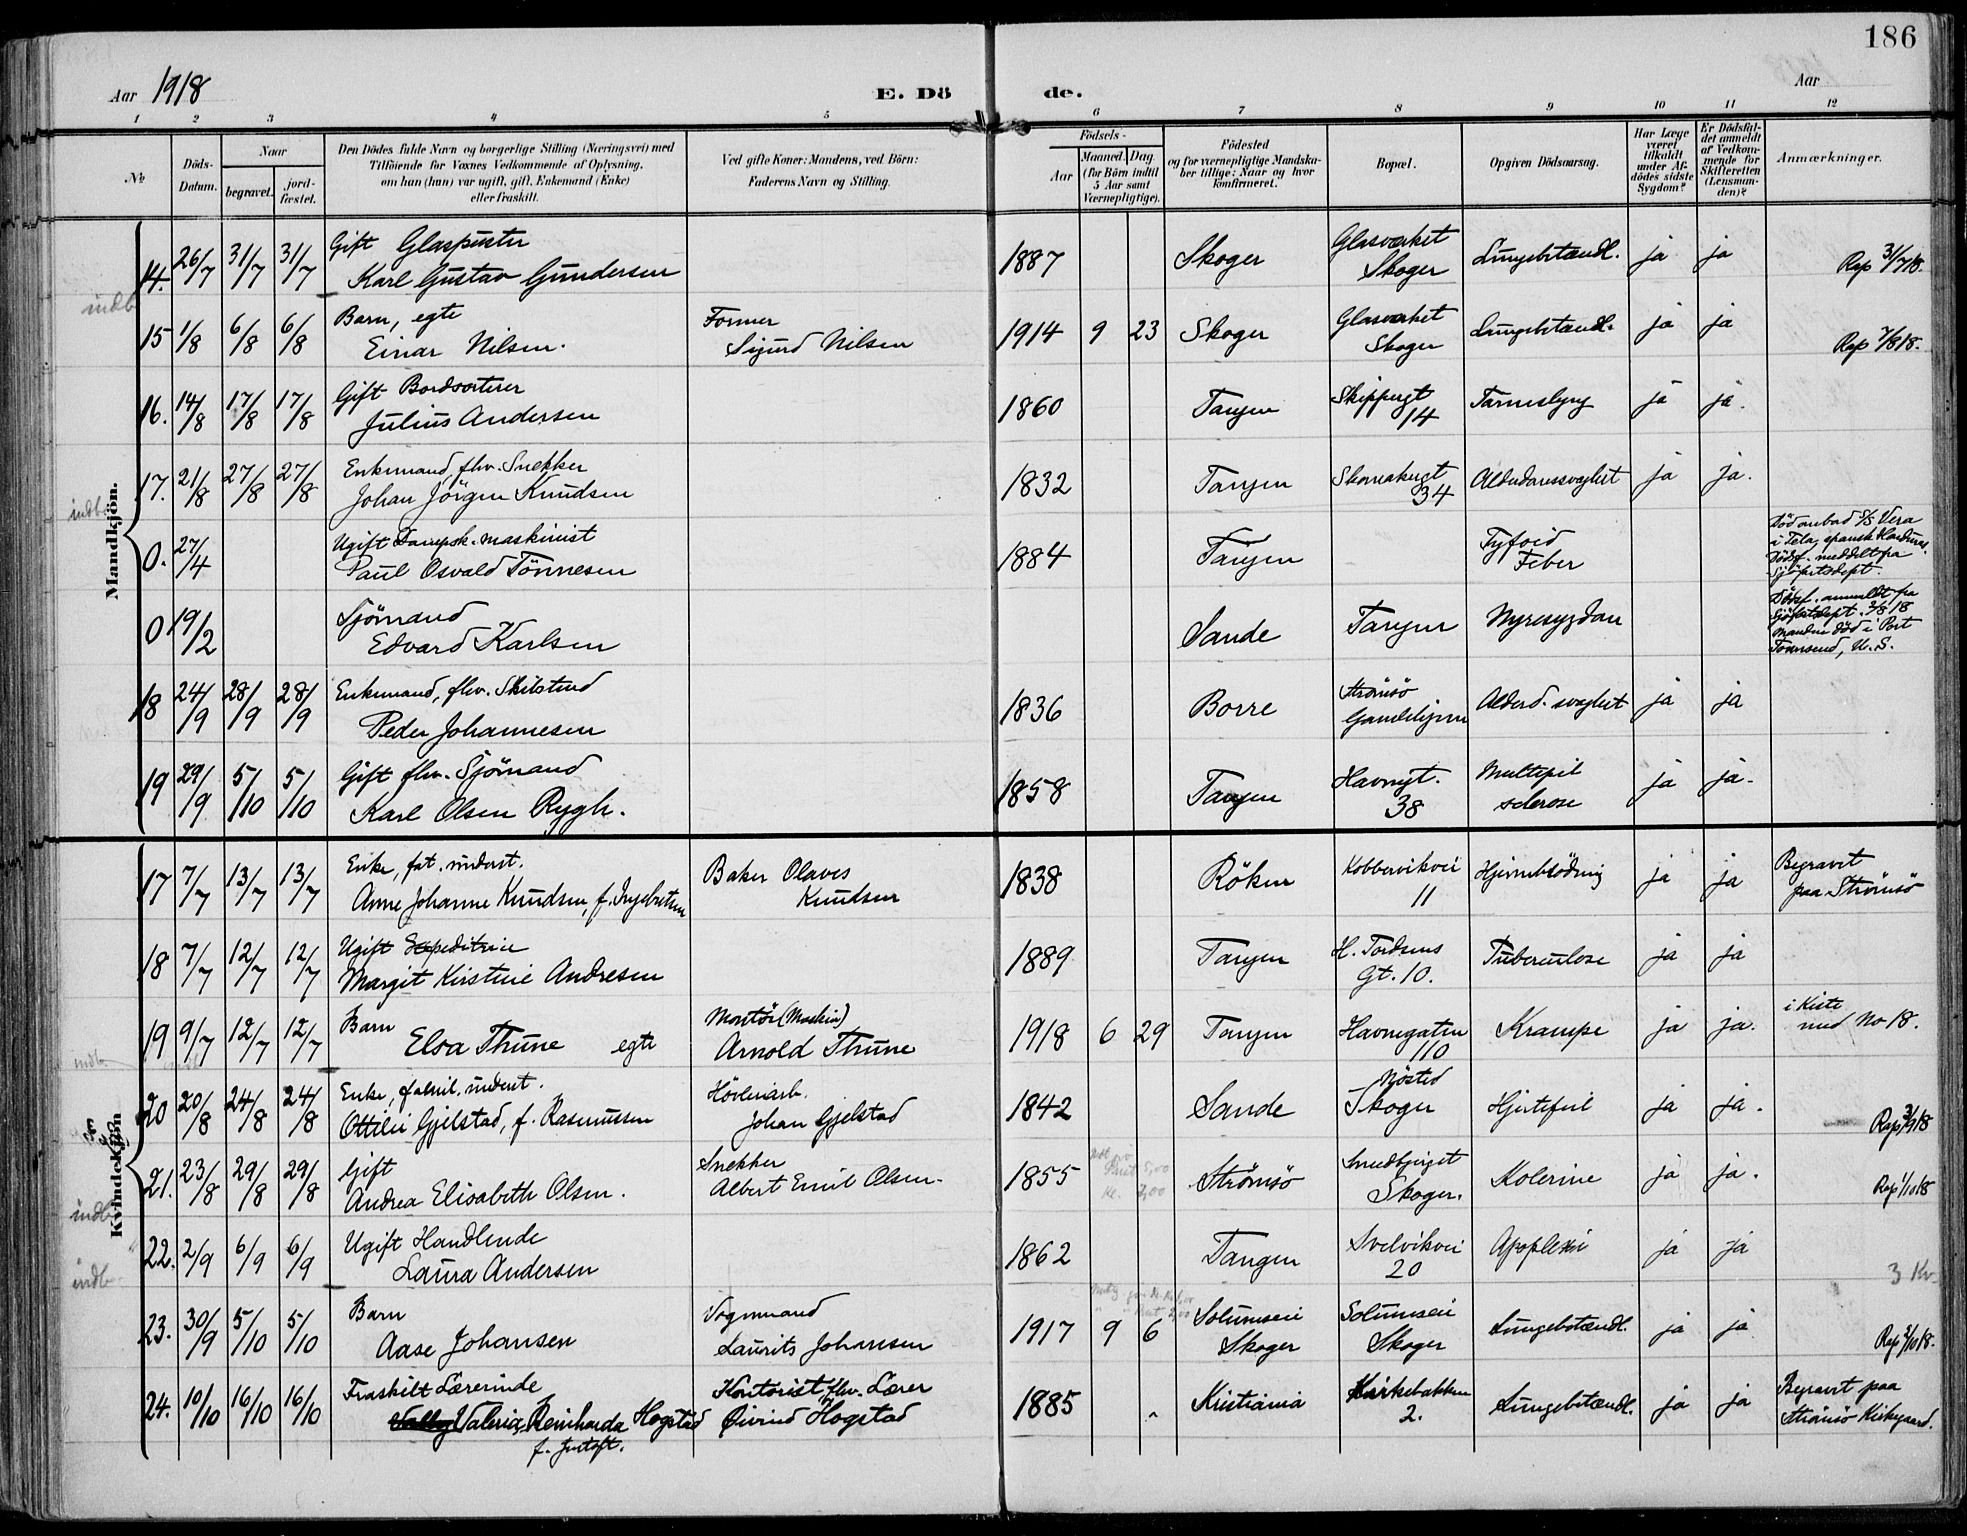 186
Aar 1918 E. Dö de. Aar
1 2 3 4 5 6 7 8 9 10 11 12
№ Döds-Datum. Naar begravet. jordfæstet. Den Dödes fulde Navn og borgerlige Stilling (Næringsvei) med Tilföiende for Voxnes Vedkommende af Oplysning, om han (hun) var ugift, gift, Enkemand (Enke) eller fraskilt. Ved gifte Koner: Mandens, ved Börn: Faderens Navn og Stilling. Födsels- Aar Maaned. Dag (for Börn indtil 5 Aar samt Værnepligtige). Födested og for værnepligtige Mandskaber tillige: Naar og hvor konfirmeret. Bopæl. Opgiven Dödsaarsag. Har Læge været tilkaldt under Afdödes sidste Sygdom? Er Dödsfaldet anmeldt af Vedkommende for Skifteretten (Lensmanden)? Anmærkninger.
Mandkjön.
14. 26/7 31/7 31/7 Gift Glaspuster 1887 Skoger Glasverket Lungebetændl. ja ja
Karl Gustav Gundersen Skoger Rap 31/7 18.
indb.
15 1/8 6/8 6/8 Barn, egte Former 1914 9 23 Skoger Glasverket Lungebetændl. ja ja
Einar Nilsen. Sigurd Nilsen Skoger Rap 7/8 18.
16. 14/8 17/8 17/8 Gift Bordsorterer 1860 Tangen Skippergt Tarmslyng ja ja.
Julius Andersen 14
17. 21/8 27/8 27/8 Enkemand, fhv. Snekker 1832 Tangen Skomakergt Alderdomssvaghet ja ja.
indb. Johan Jörgen Knudsen 34
0. 27/4 Ugift Dampsk. maskinist 1884 Tangen Tyfoid Död ombord S/S Vera
Paul Osvald Tönnesen Feber i Tela, spansk Honduras.
Dödsf. meddelt fra
Sjöfartsdept.
0 19/2 Sjömand Sande Tangen Nyresygdom Dödsf. anmeldt fra
Edvard Karlsen Sjöfartsdept. 3/8 18
Manden död i Port
Townsend, U. S.
18 24/9 28/9 28/9 Enkemand, fhv. 1836 Borre Strømsö Alderd. svaghet ja ja
Peder Johannesen Gamlehjem
19 29/9 5/10 5/10 Gift fhv. Sjömand 1858 Tangen Havnegt. Multipel ja ja.
Karl Olsen Rygh. 38 sclerose
Kvindekjön
17 7/7 13/7 13/7 Enke, fat. underst. Baker Olaves 1838 Röken Kobbervikvei Hjerneblödning ja ja Begravet
Anne Johanne Knudsen, f. Ingebretsen Knudsen 11 paa Strömsö
18 7/7 12/7 12/7 Ugift Expeditrice 1889 Tangen H. Tordsens Tuberculose ja ja
Margit Kirstine Andresen Gt. 10.
19 9/7 12/7 12/7 Barn Montör (Maskin) 1918 6 29 Tangen Havnegaten Krampe ja ja. i Kiste
indb. Elsa Thune egte Arnold Thune 110 med No 18.
20 20/8 24/8 24/8 Enke, faml. underst. Hövleriarb. 1842 Sande Nösted Hjertefeil ja ja.
Ottilie Gjelstad, f. Rasmussen Johan Gjelstad Skoger Rap 3/9 18
21. 23/8 29/8 29/8 Gift Snekker 1855 Strömsö Smedbjerget Kolerine ja ja.
Andrea Elisabeth Olsen. Albert Emil Olsen. Skoger. Rap 1/10 18
indb.
22. 2/9 6/9 6/9 Ugift Handlende 1862 Tangen Svelvikvei Apoplexi ja ja
indb. Laura Andersen 20 3 Kv.
23. 30/9 5/10 5/10 Barn Vognmand 1917 9 6 Solumseie Solumseie Lungebetændl. ja ja
Aase Johansen Laurits Johansen Skoger Skoger
24. 10/10 16/10 16/10 Fraskilt Lærerinde Kontorist, fhv. Lærer 1885 Kristiania Kirkebakken Lungebetændl. ja ja Begravet paa
Valborg Valeria Reinharda Hogstad Øivind Hogstad 2. Strömsö Kirkegaard.
f. Justoft.